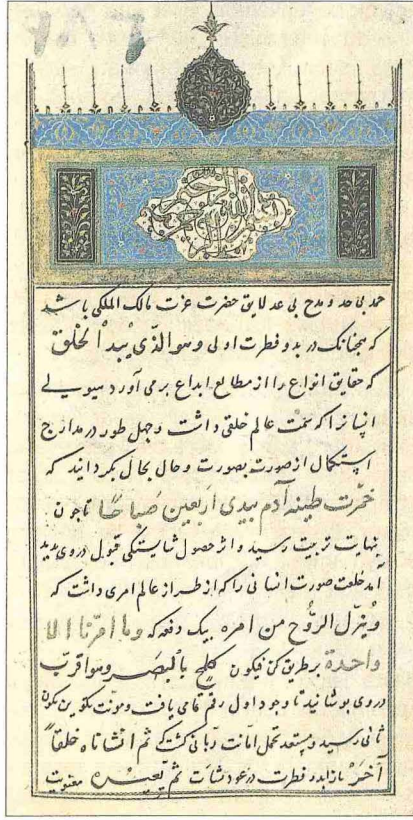 حمد بی حد و مدح بی عد لایق حضرت عزت مالک الملکی باشد
که همچنانک در بدو فطرت اولی و هو الذی یبدأ الخلق
که حقایق انواع را از مطالع ابداع برمی آورد هیولی
انسانرا که سمت عالم خلقی داشت و چهل طور در مدارج
استکمال از صورت بصورت و حال بحال بگردانید که
خمرت طینة آدم بیدی اربعین صباحًا تا چون
بنهایت تربیت رسید و اثر حصول شایستگی قبول در وی پدید
آمد خلعت صورت انسانی را که از طراز عالم امری داشت که
و ینزل الروح من امره بیک دفعه که وما امرنا الا
واحدة بر طریق کن فیکون کلمح بالبصر و هو اقرب
در وی پوشانید تا وجود اول رقم تمامی یافت و نوبت بتکوین بکون
ثانی رسید و مستعد تحمل امانت ربانی گشت که ثم انشاناه خلقاً
آخر باز ابدو فطرت در عود نشات ثم یعیده معنویت